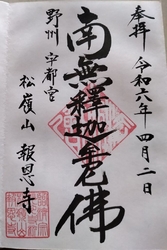 奉拝 令和六年 四月二日
南無釋迦牟尼佛
野州 宇都宮
松嶺山 報恩寺